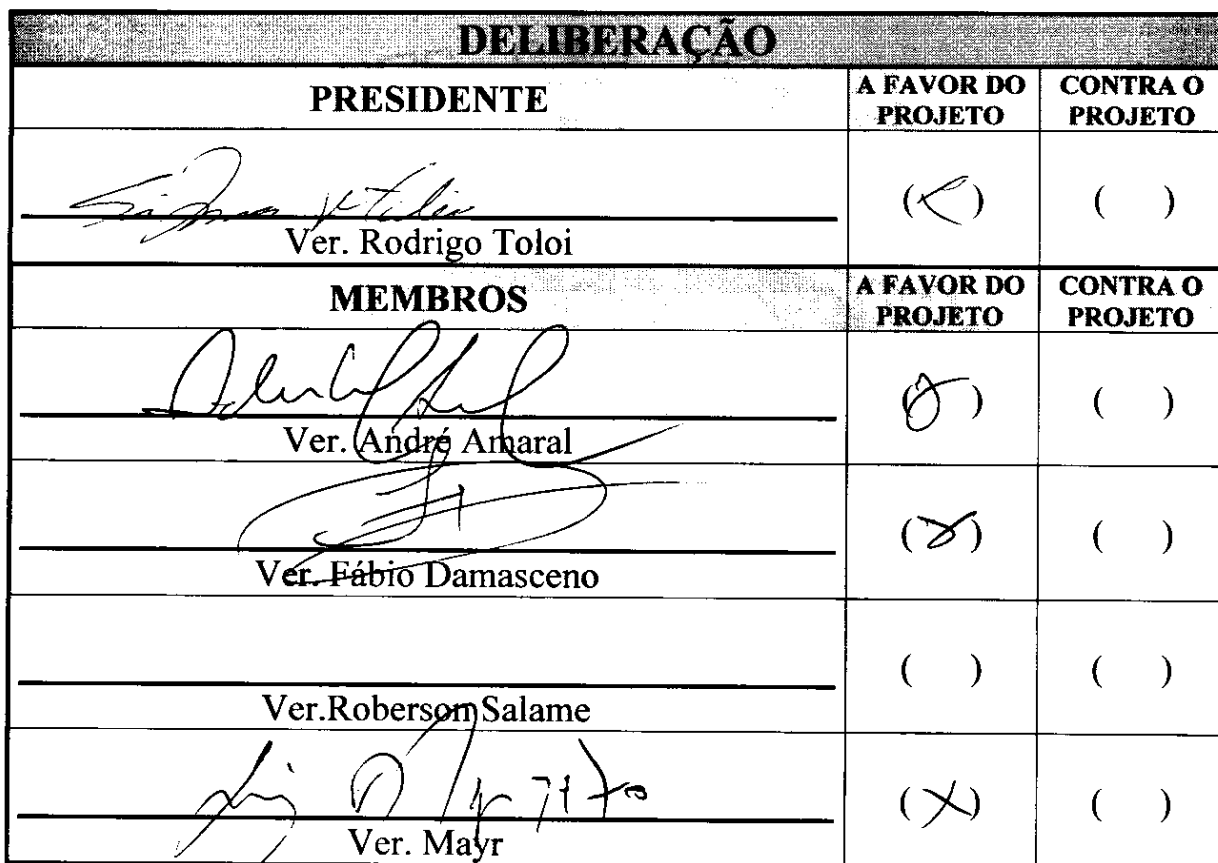 DELIBERAÇÃO
PRESIDENTE
A FAVOR DO PROJETO
CONTRA O PROJETO
( ) ( )
Ver. Rodrigo Toloi
MEMBROS
A FAVOR DO PROJETO
CONTRA O PROJETO
( ) ( )
Ver. André Amaral
( ) ( )
Ver. Fábio Damasceno
( ) ( )
Ver.Roberson Salame
(X) ( )
Ver. Mayr